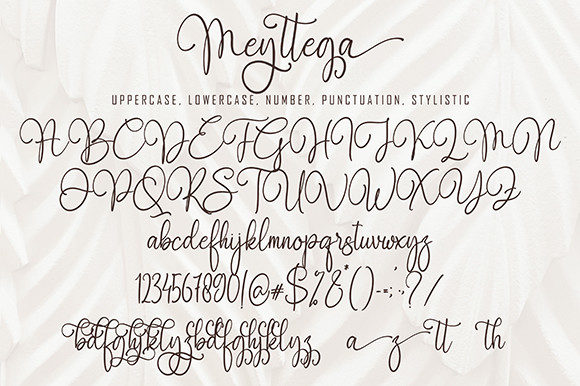 Meyttega
UPPERCASE, LOWERCASE, NUMBER, PUNCTUATION, STYLISTIC
ABCDEFGHIJKLMN
OPQRSTUVWXYZ
abcdefhijklmnopqrstuvwxyz
1234567890!@#$%&*()-=:;,.?/
bdfghjklyzbdfghjklyz a z tt th